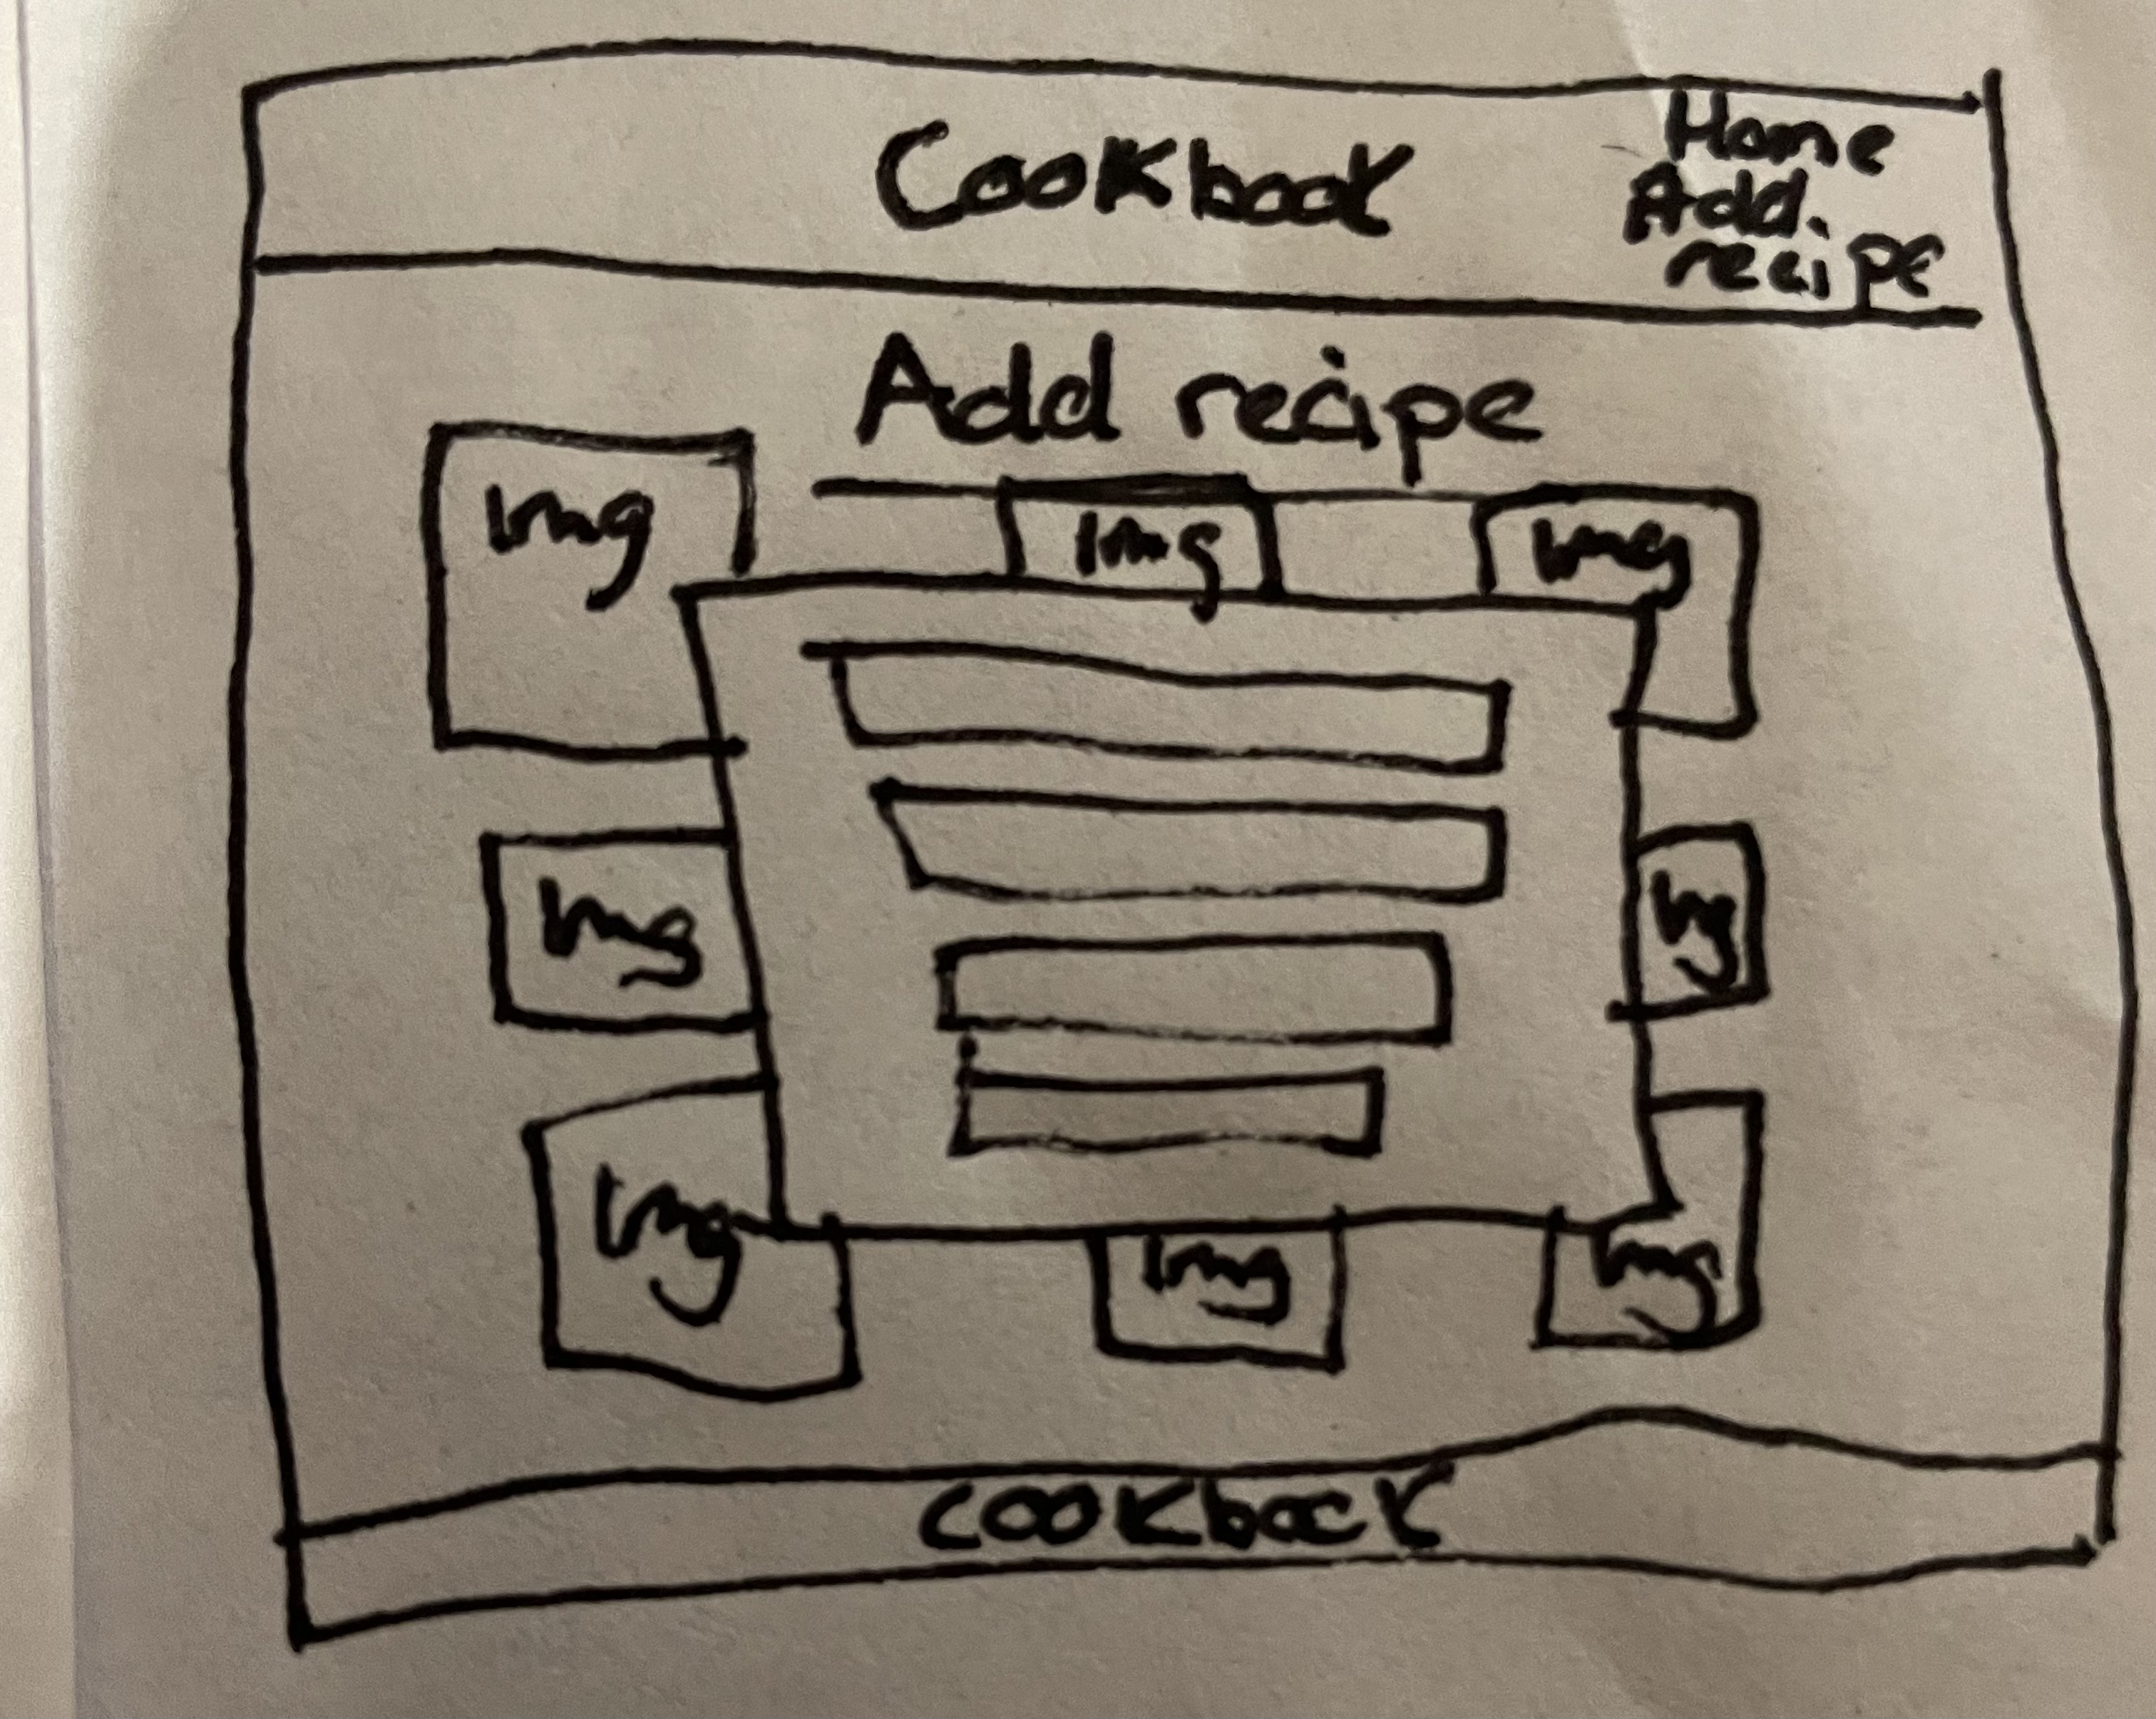 Cookbook
Home
Add.
recipe
Add recipe
Img
Img
Img
Img
Img
Img
Img
Cookbook